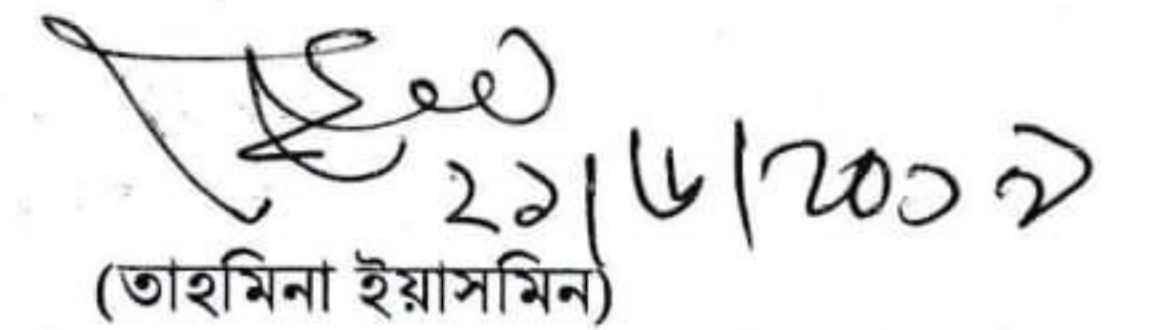 ২১/৬/২০১৯
(তাহমিনা ইয়াসমিন)